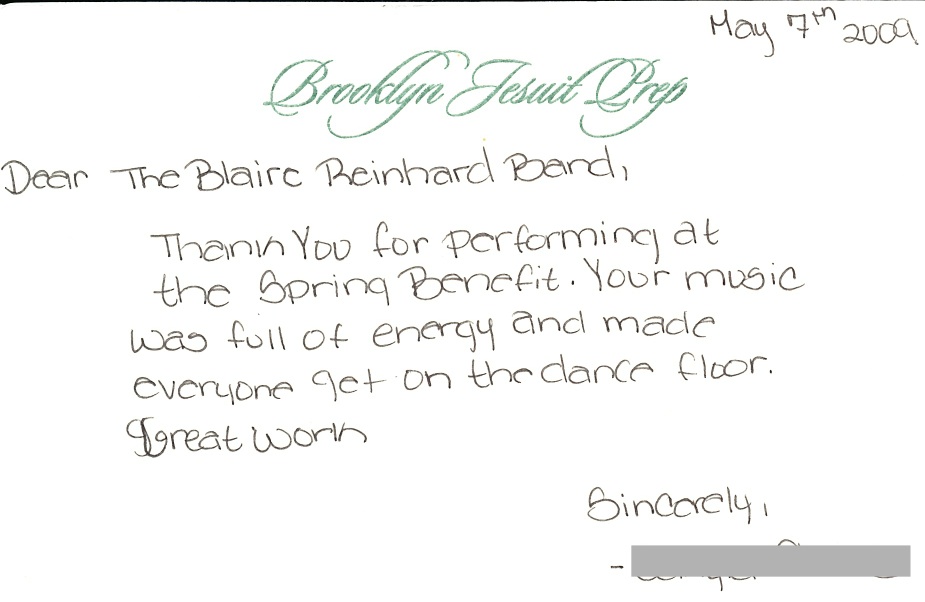 May 7th 2009
Brooklyn Jesuit Prep
Dear The Blaire Reinhard Band,
Thank You for performing at
the Spring Benefit. Your music
was full of energy and made
everyone get on the dance floor.
Great work
Sincerely,
-